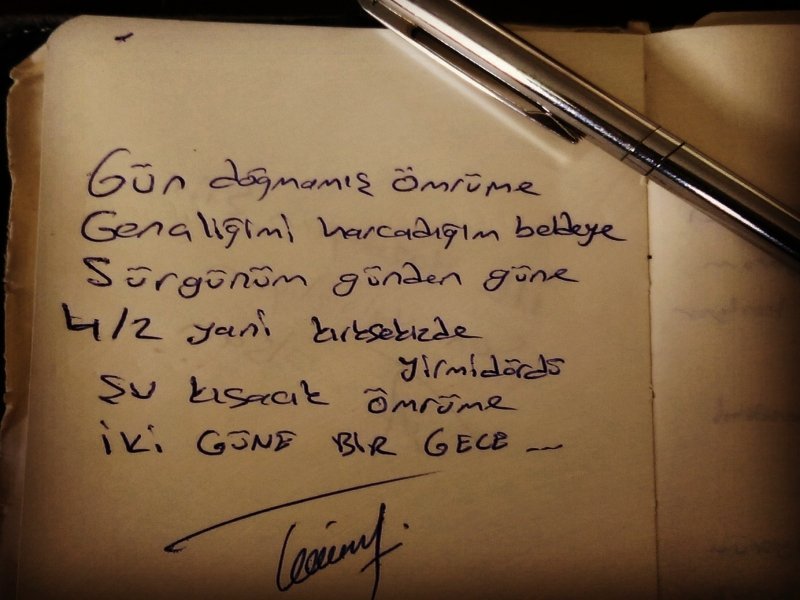 Gün doğmamış ömrüme
Gençliğimi harcadığım beldeye
Sürgünüm günden güne
4/2 yani kırksekizde
yirmidördü
Şu kısacık ömrüme
İKİ GÜNE BİR GECE ...